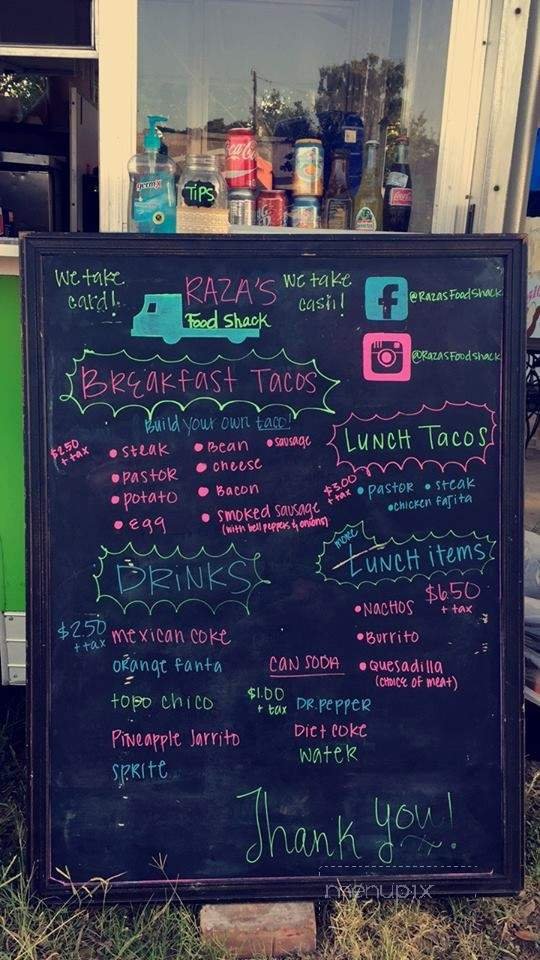 germx
TIPS
Coca-Cola
We take
card!
RAZA'S
Food Shack
We take
cash!
f
@RazasFoodShack
@RazasFoodshack
Breakfast Tacos
Build your own taco!
$2.50
+ tax
• steak
• pastor
• potato
• egg
• Bean
• cheese
• Bacon
• smoked sausage
(with bell peppers & onions)
• sausage
LUNCH TACOS
$3.00
+ tax
• pastor • steak
• chicken fajita
DRINKS
$2.50
+ tax
mexican coke
orange fanta
topo chico
Pineapple Jarrito
sprite
CAN SODA
$1.00
+ tax
DR. pepper
Diet coke
water
more
Lunch items
$6.50
+ tax
• NACHOS
• Burrito
• Quesadilla
(choice of meat)
Thank you!
menupix